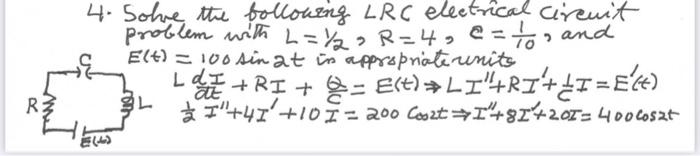 4. Solve the following LRC electrical circuit
problem with L = 1/2, R = 4, C = 1/10, and
E(t) = 100 sin 2t in appropriate units
L dI/dt + RI + Q/C = E(t) ⇒ LI'' + RI' + 1/C I = E'(t)
1/2 I'' + 4I' + 10 I = 200 Cos2t ⇒ I'' + 8I' + 20I = 400 Cos2t
C
R
L
E(t)